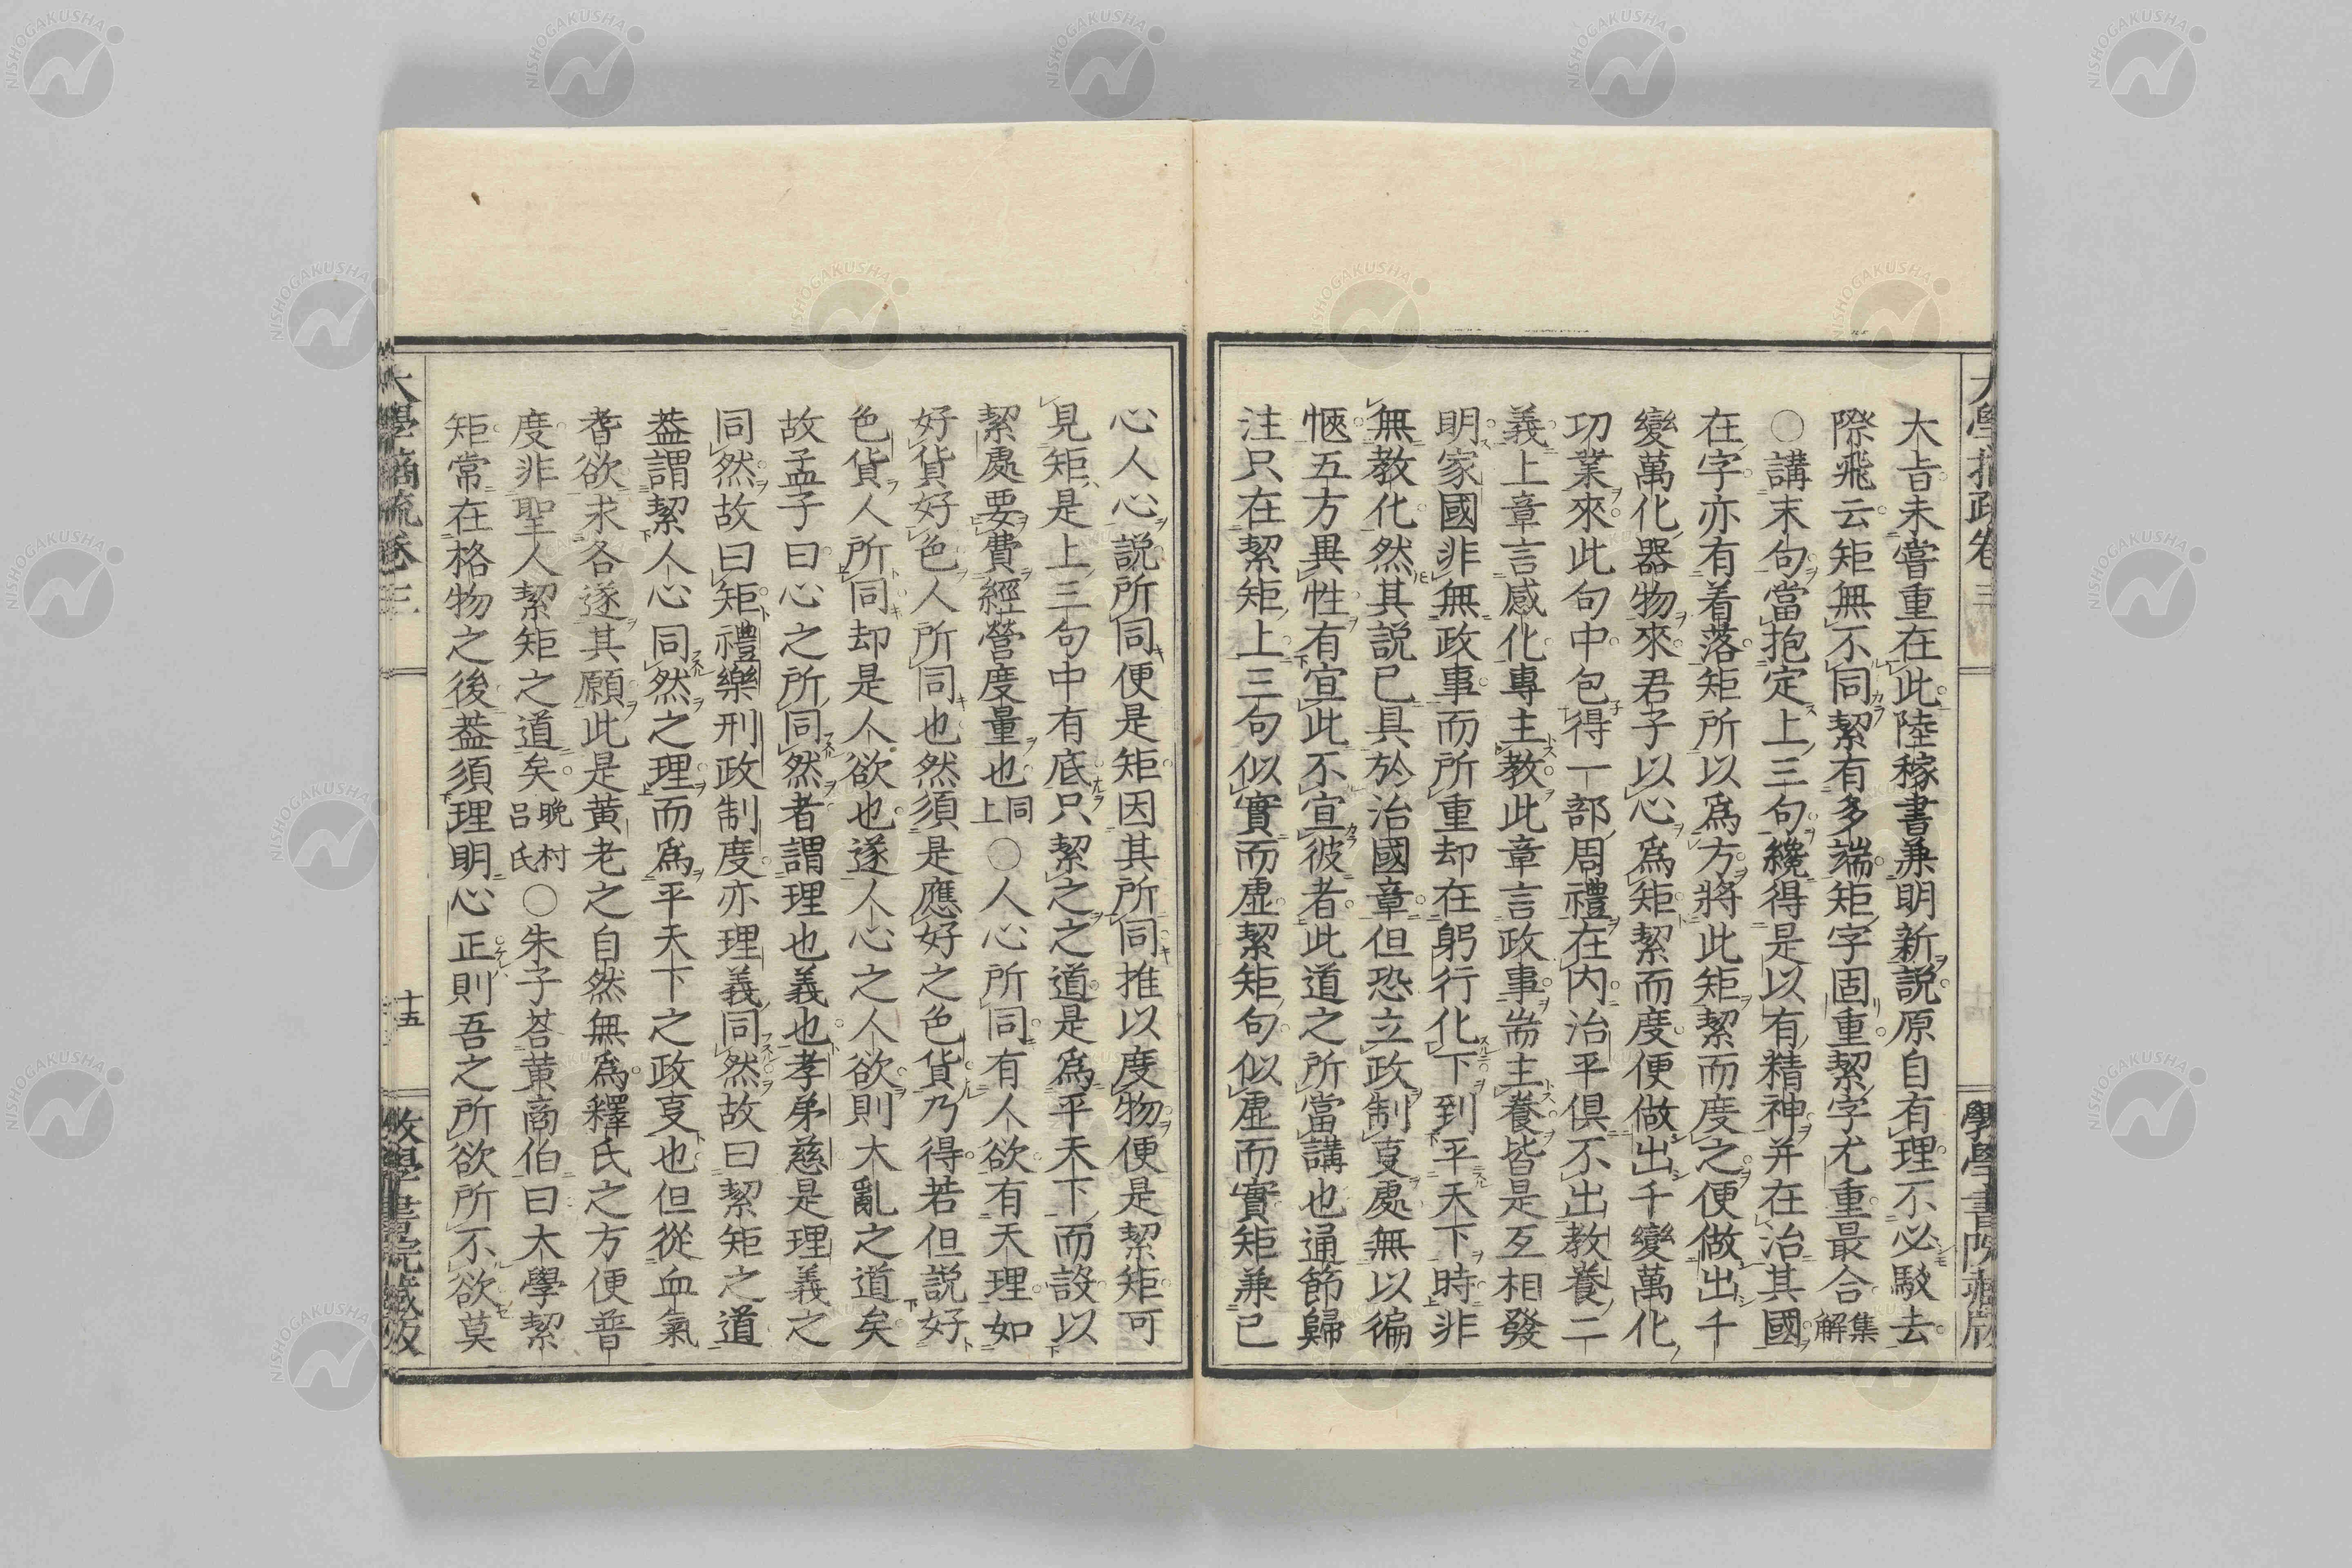 大旨未嘗重在此陸稼書兼明新説原自有理不必駁去
際飛云矩無不同絜有多端矩字固重絜字尤重最合集解
○講末句當抱定上三句纔得是以有精神并在治其國
在字亦有着落矩所以爲方將此矩絜而度之便做出千
變萬化器物來君子以心爲矩絜而度便做出千變萬化
功業來此句中包得一部周禮在内治平倶不出教養二
義上章言感化專主教此章言政事耑主養皆是互相發
明家國非無政事而所重却在躬行化下到平天下時非
無教化然其説已具於治國章但恐立政制㕝處無以徧
愜五方異性有宜此不宜彼者此道之所當講也通節歸
注只在絜矩上三句似實而虚絜矩句似虚而實矩兼己
心人心説所同便是矩因其所同推以度物便是絜矩可
見矩是上三句中有底只絜之之道是爲平天下而設以
絜處要費經營度量也同上○人心所同有人欲有天理如
好貨好色人所同也然須是應好之色貨乃得若但説好
色貨人所同却是人欲也遂人心之人欲則大亂之道矣
故孟子曰心之所同然者謂理也義也孝弟慈是理義之
同然故曰矩禮樂刑政制度亦理義同然故曰絜矩之道
葢謂絜人心同然之理而爲平天下之政㕝也但從血氣
耆欲求各遂其願此是黄老之自然無爲釋氏之方便普
度非聖人絜矩之道矣晩村呂氏○朱子荅黄商伯曰大學絜
矩常在格物之後葢須理明心正則吾之所欲所不欲莫
大學摘疏卷三
十五
學書院藏版